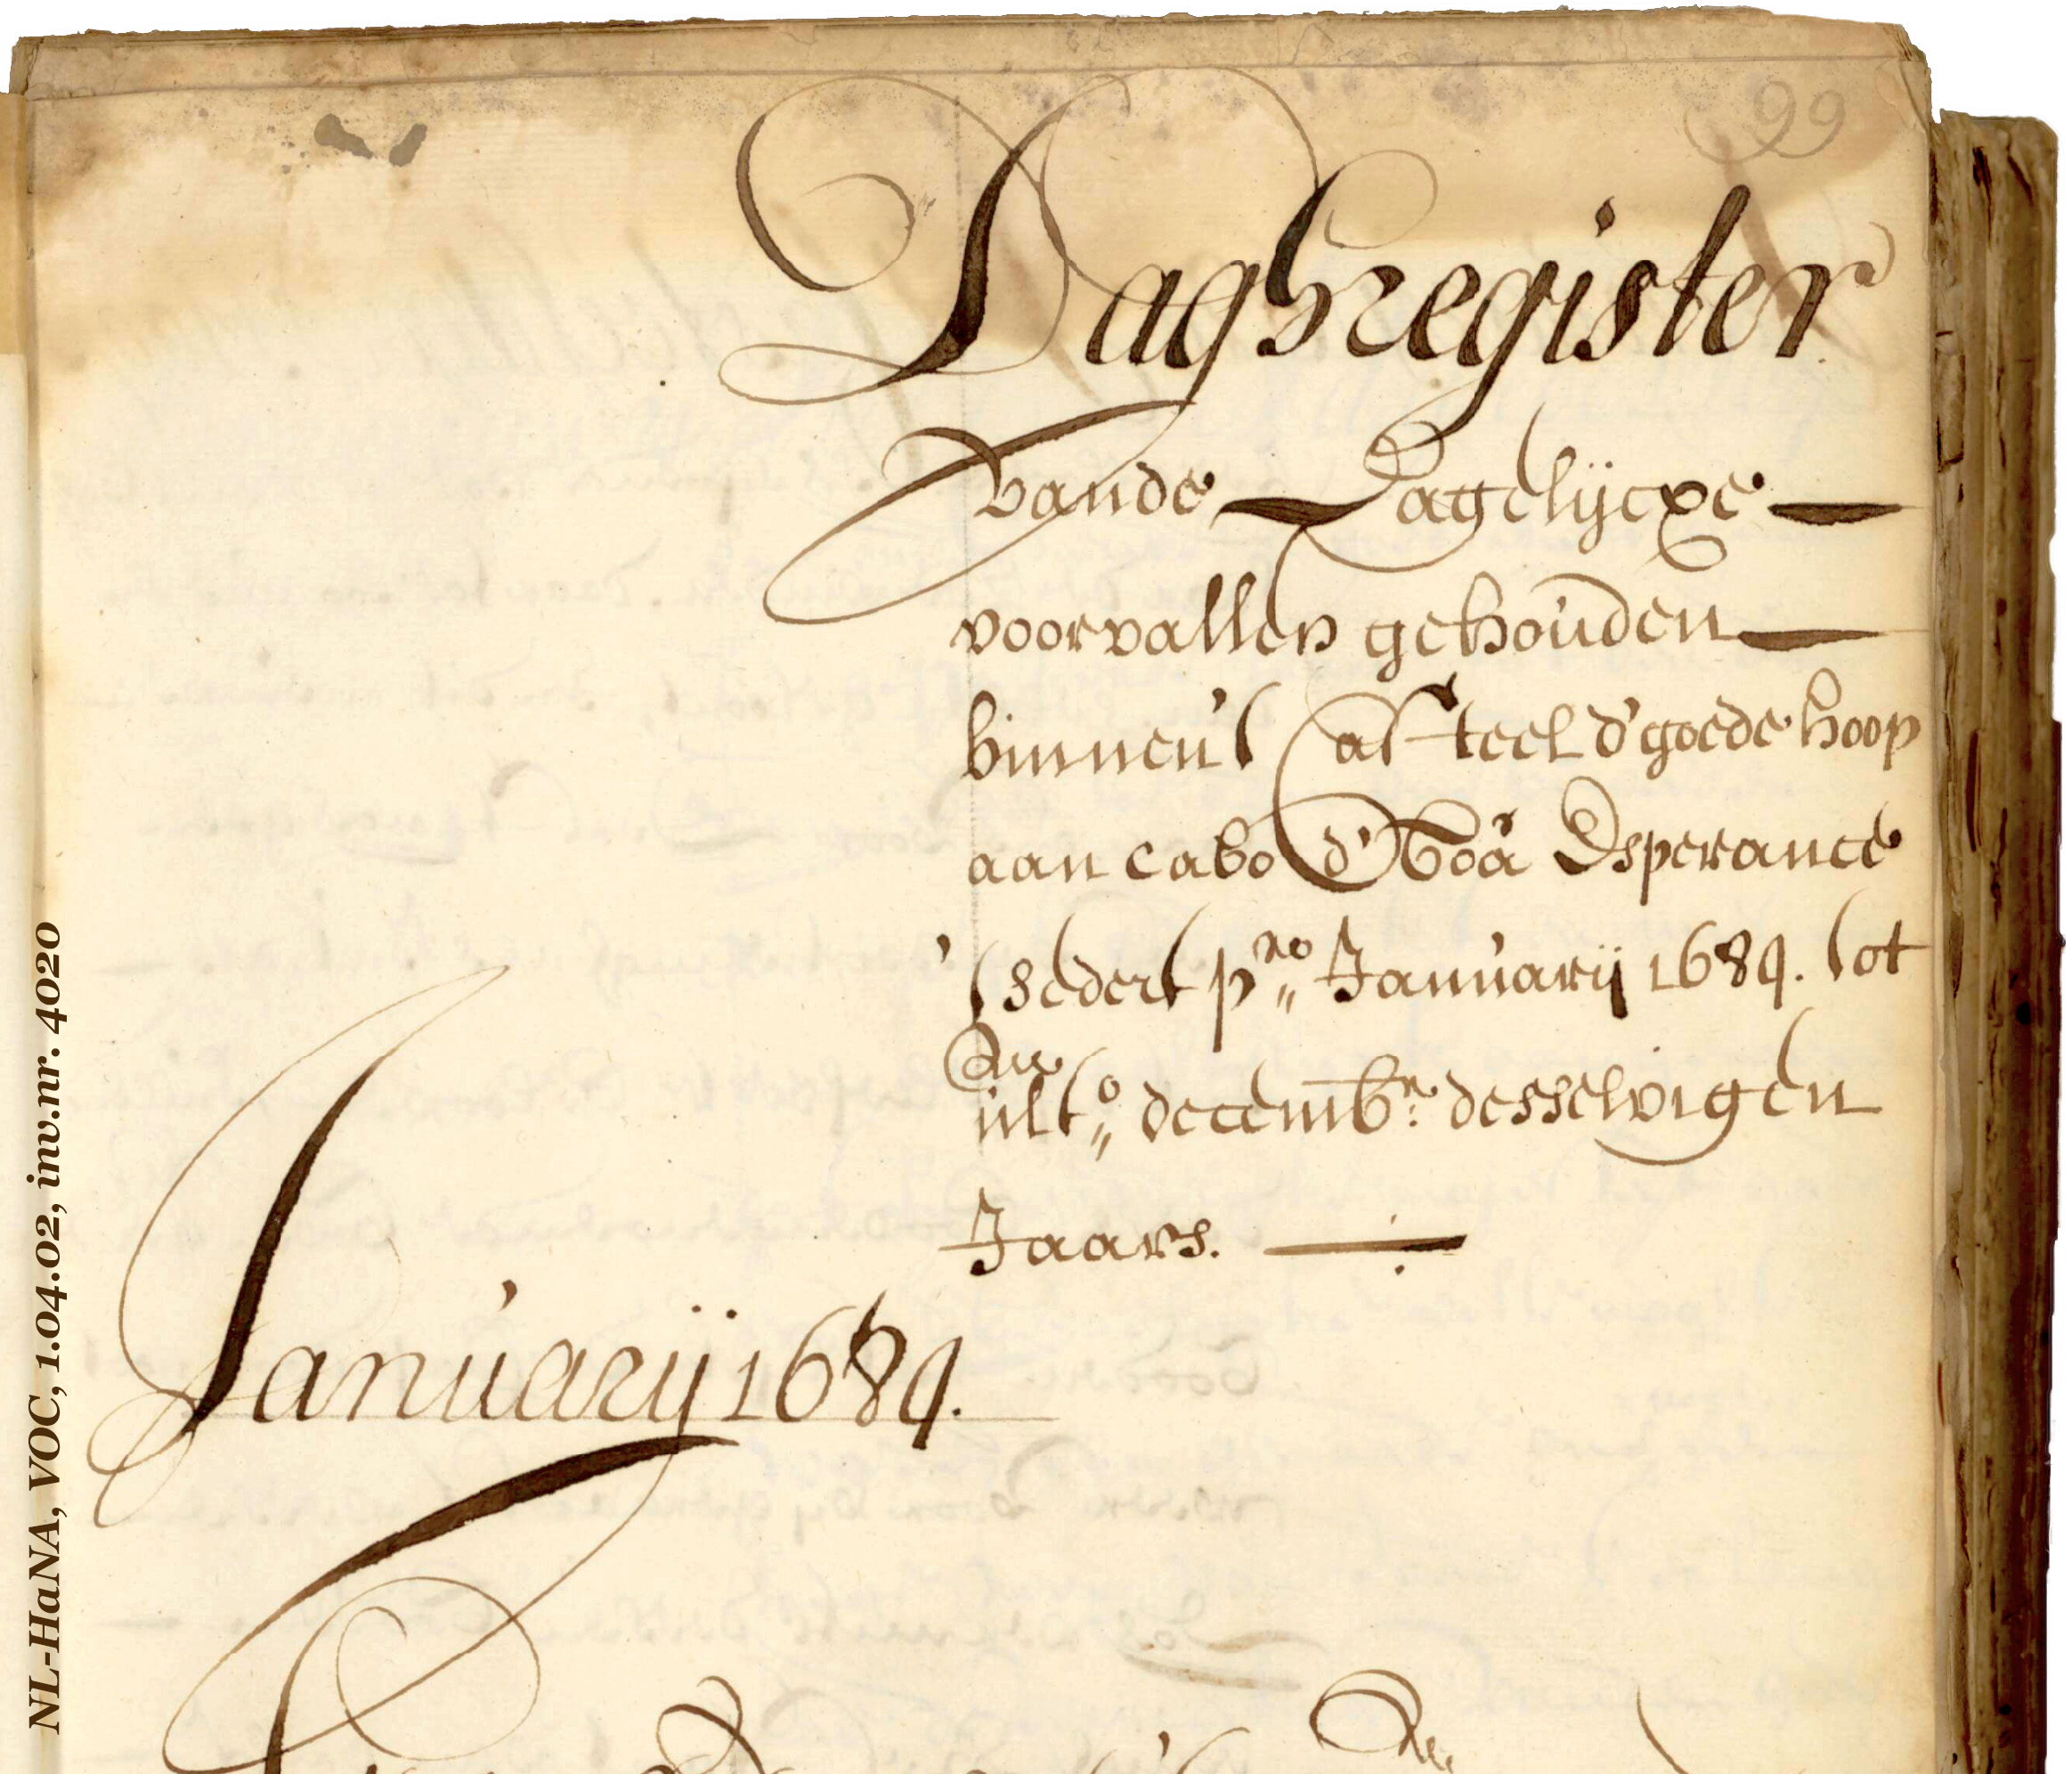 99
Daghregister
Vande Dagelijcxe
voorvallen gehouden
binnen't Casteel d'goede hoop
aan cabo d' Boã Esperance
'tsedert p:mo Januarij 1684. tot
den
ult:o decemb:r desselvigen
Jaars.
Januarij 1684.
NL-HaNA, VOC, 1.04.02, inv.nr. 4020